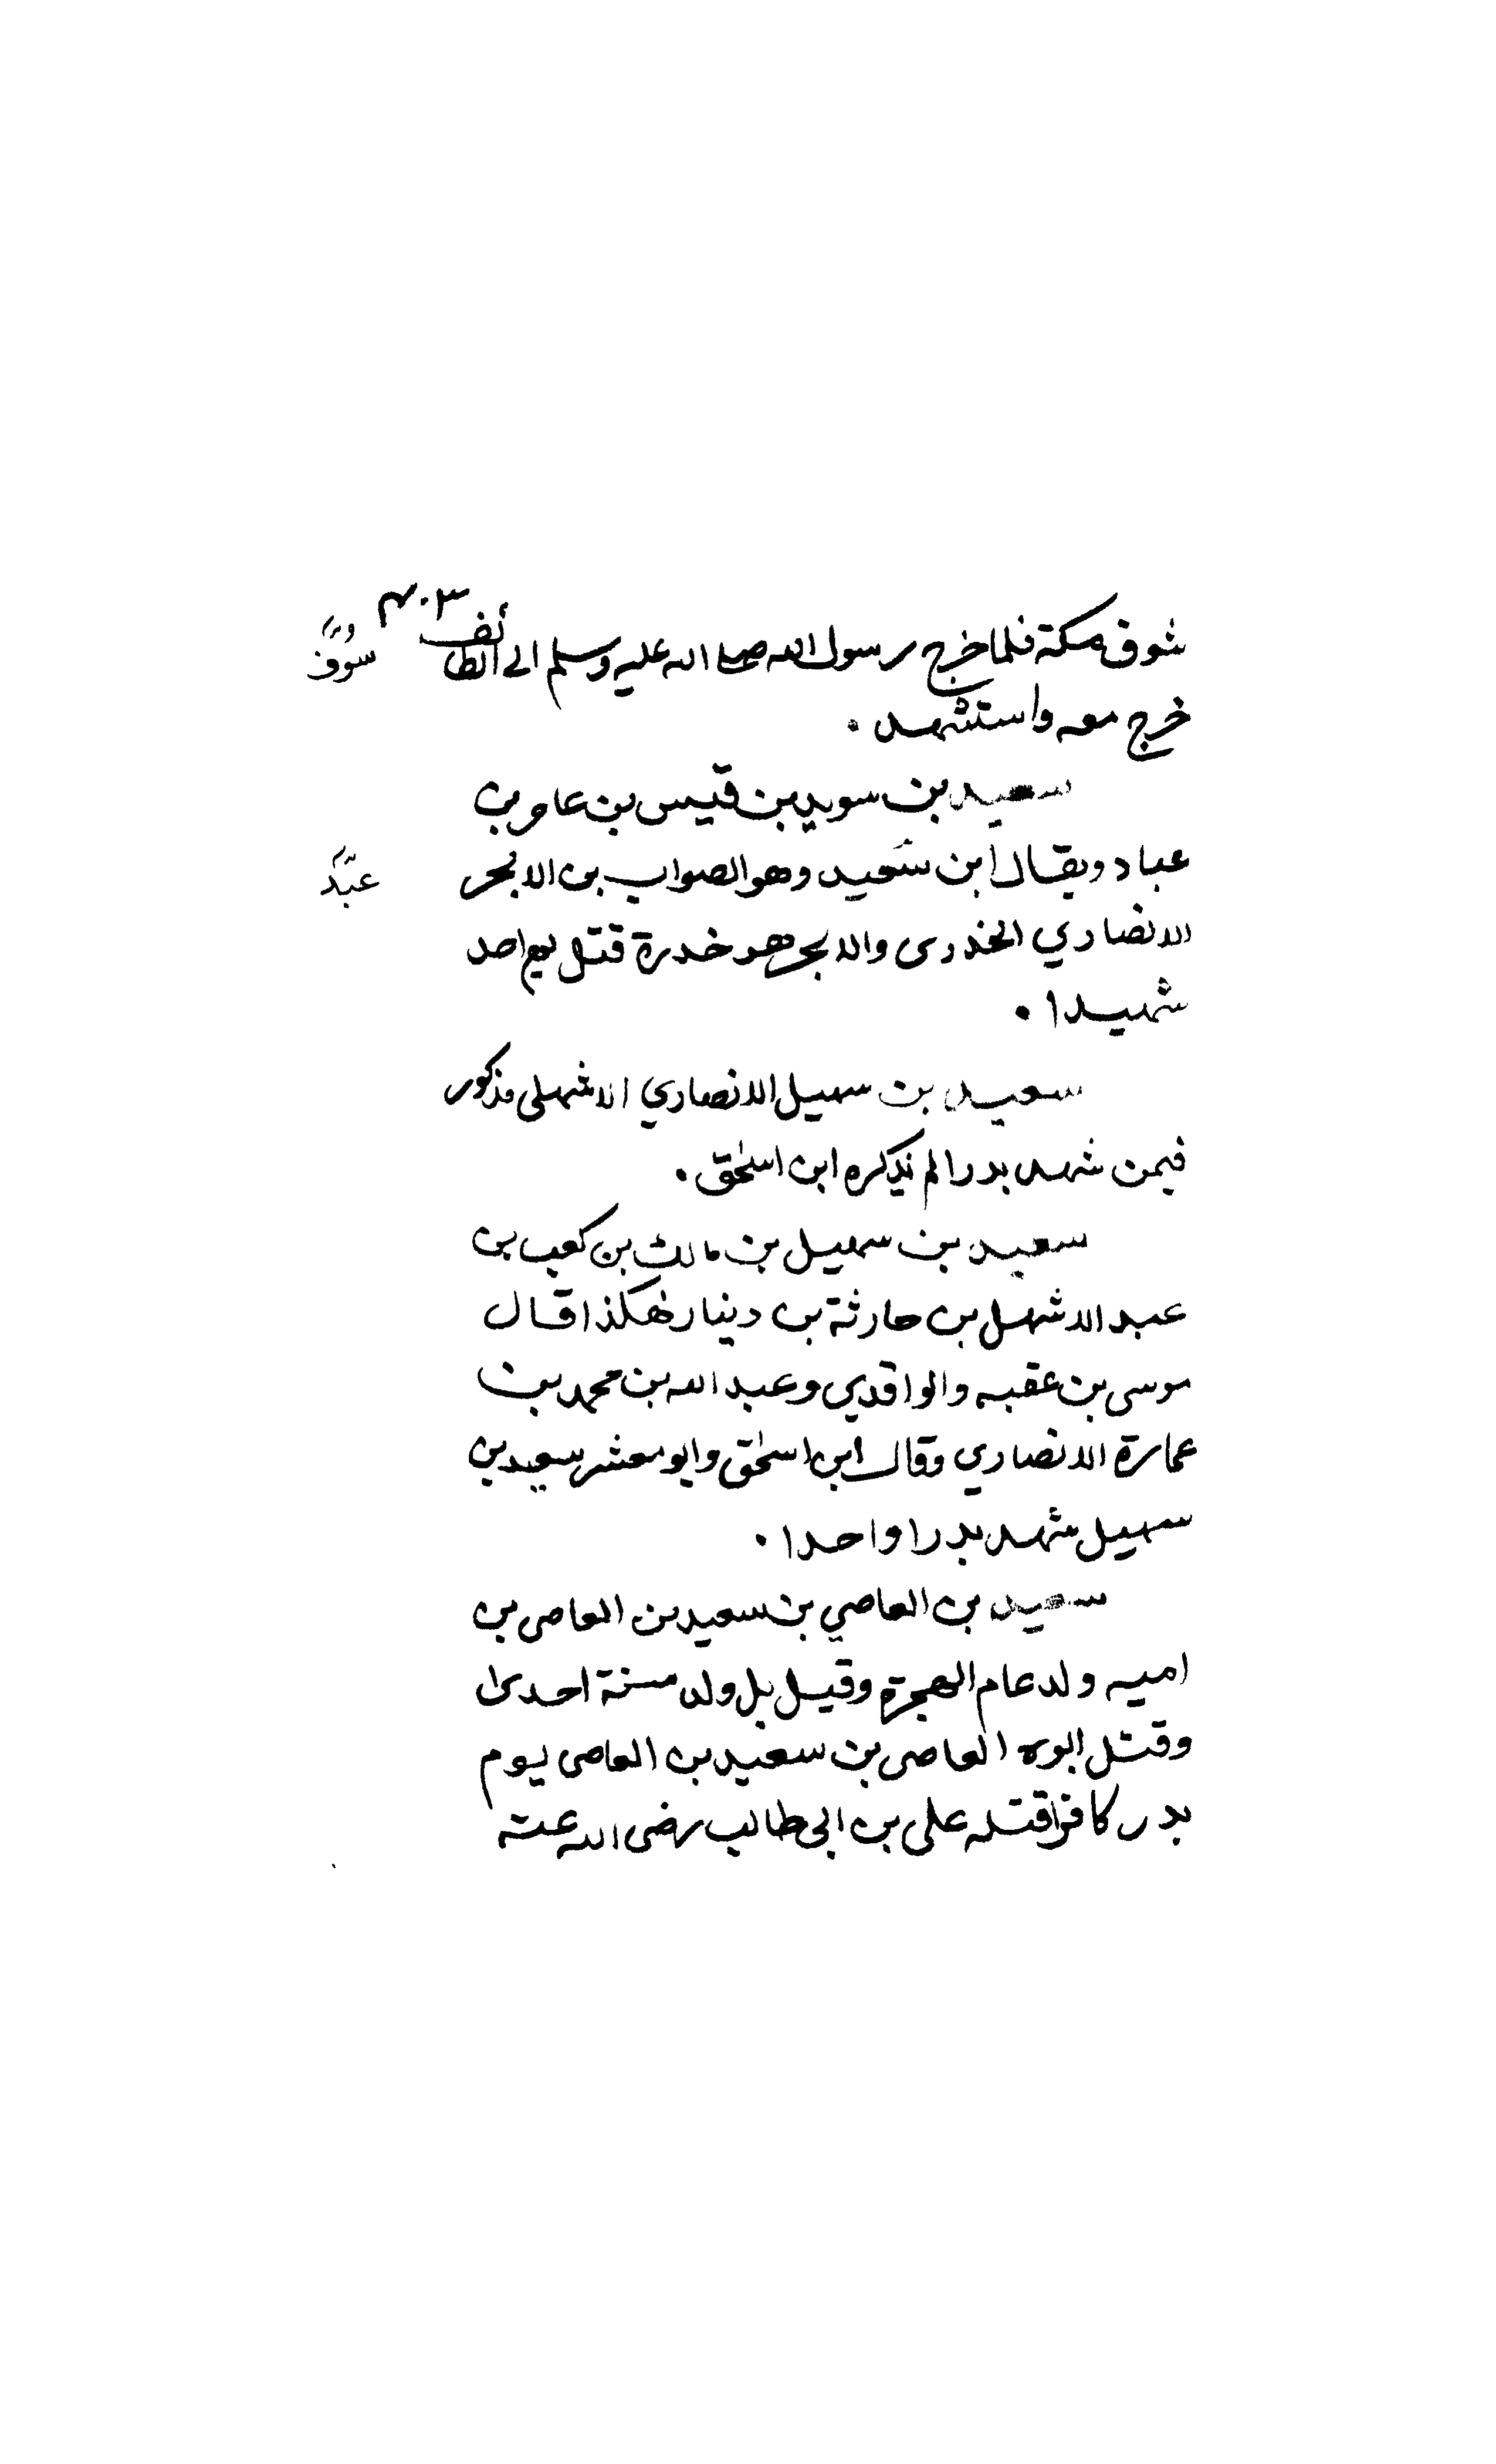 ٤٠٣
شوف مكة فلما خرج رسول الله صلى الله عليه وسلم الى الطائف
سوق
خرج معه واستشهد ٠
سعيد بن سويد بن قيس بن عامر بن
عباد ويقال ابن سعيد وهو الصواب بن الابجر
عبد
الانصاري الخدرى والابجر هو خدرة قتل يوم احد
شهيدا ٠
سعيد بن سهيل الانصاري الاشهلى مذكور
فيمن شهد بدرا لم يذكره ابن اسحق ٠
سعيد بن سهيل بن مالك بن كعب بن
عبد الاشهل بن حارثة بن دينار هكذا قال
موسى بن عقبه والواقدي وعبد الله بن محمد بن
عمارة الانصاري وقال ابن اسحق وابو معشر سعيد بن
سهيل شهد بدرا واحدا ٠
سعيد بن العاصي بن سعيد بن العاصى بن
اميه ولد عام الهجرة وقيل بل ولد سنة احدى
وقتل ابوه العاصى بن سعيد بن العاصى يوم
بدر كافرا قتله على بن ابى طالب رضى الله عنه